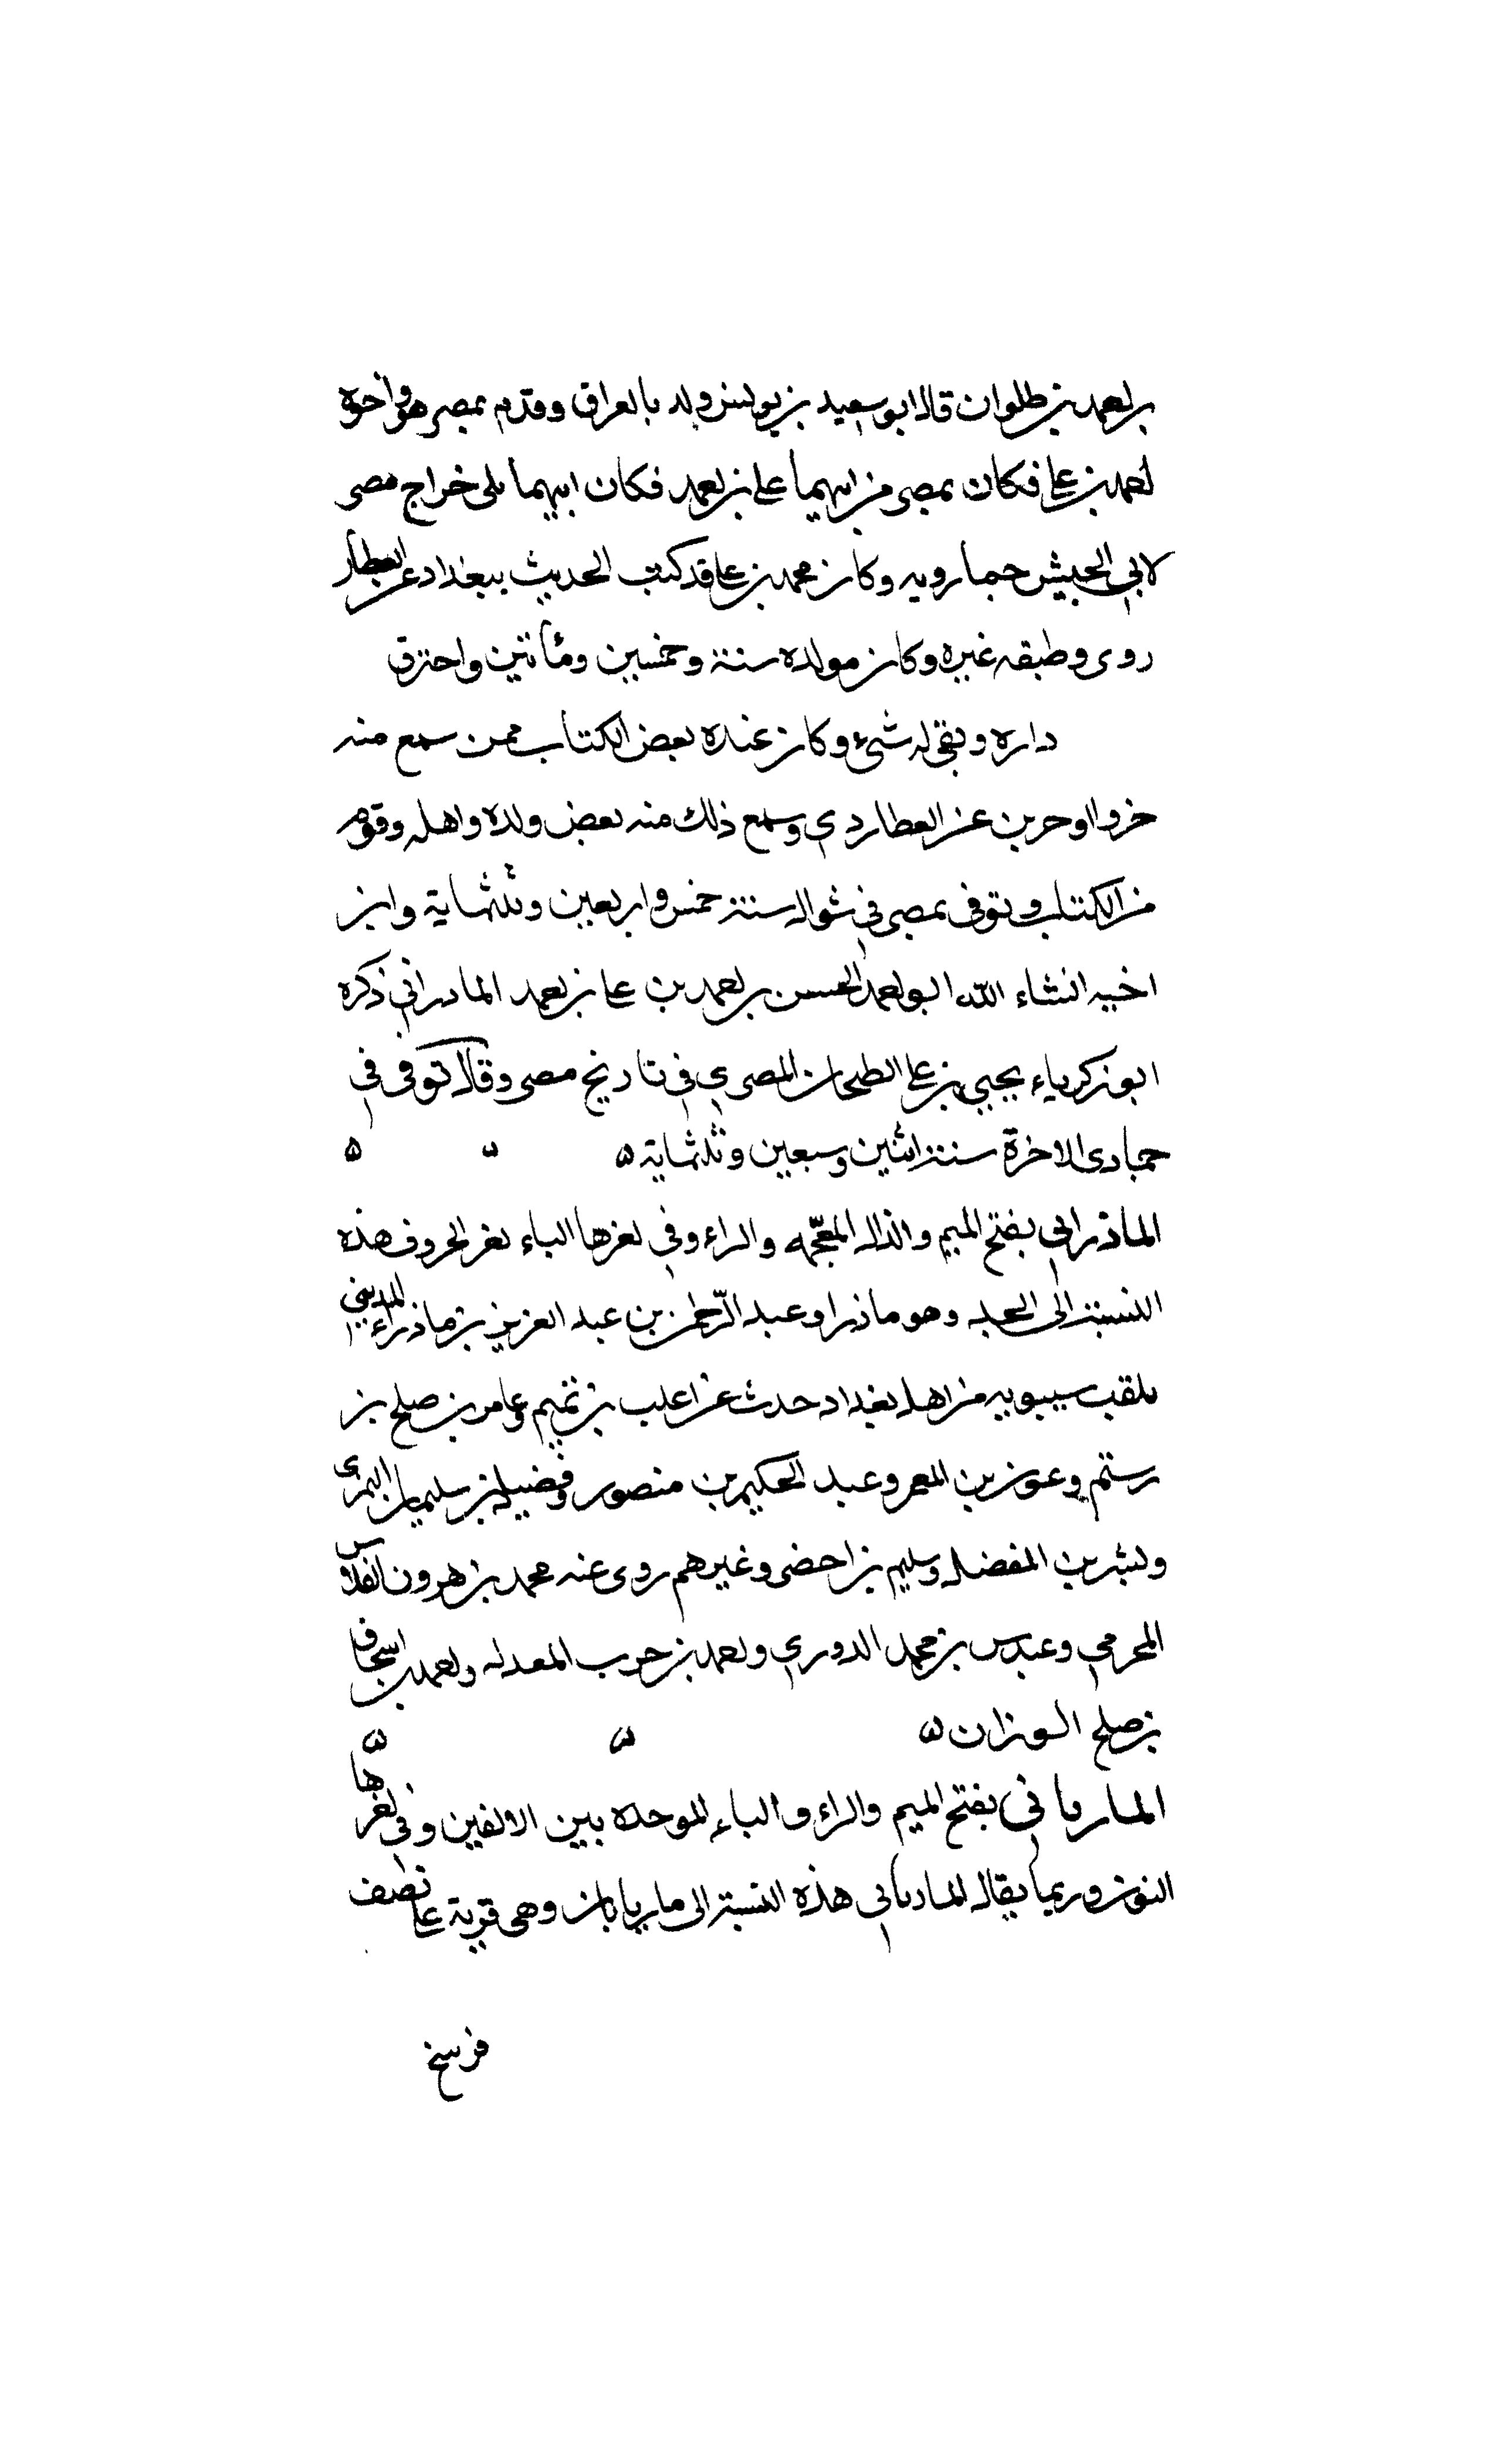 بن احمد بن طلوان قال ابو سعيد بن يونس ولد بالعراق وقدم بمصر هو واخوه
احمد بن على فكان بمصر من ابيهما على بن احمد فكان ابيهما يلى خراج مصر
لابي الجيش خمارويه وكان محمد بن على قد كتب الحديث ببغداد عن العطار
روى وطبقه غيره وكان مولده سنة وخمسين ومأتين واحترق
داره وبقى له شىء وكان عنده بعض الكتاب ممن سمع منه
جزوا وجزين عن العطاردي وسمع ذلك منه بعض ولده واهله وقوم
من الكتاب وتوفى بمصر في شوال سنة خمس واربعين وثلثماية وابن
اخيه انشاء الله ابو احمد الحسن بن احمد بن على بن احمد المادراني ذكره
ابو زكرياء يحيى بن على الطحان المصري في تاريخ مصر وقال توفى في
جمادى الاخرة سنة اثنين وسبعين وثلثماية ه ه ه
الماذرابي بفتح الميم والذال المعجمه والراء وفي اخرها الباء اخر الحروف هذه
النسبة الى الجد وهو ماذرا وعبد الرحمن بن عبد العزيز بن ماذراء المديني
يلقب سيبويه من اهل بغداد حدث عن اغلب بن تميم وعامر بن صلح بن
رستم وعون بن المعمر وعبد الحكيم بن منصور وفضيل بن سليمان النمرى
وبشر بن المفضل وسليم بن اخضر وغيرهم روى عنه محمد بن هرون الفلاس
المخرمي وعباس بن محمد الدوري واحمد بن حرب المعدل واحمد بن اسحاق
بن صلح الوزان ه ه ه
الماربانى بفتح الميم والراء والباء الموحده بين الالفين وفي اخرها
النون وربما يقال المادبابي هذه النسبة الى ماربابان وهى قرية على نصف
فرسخ